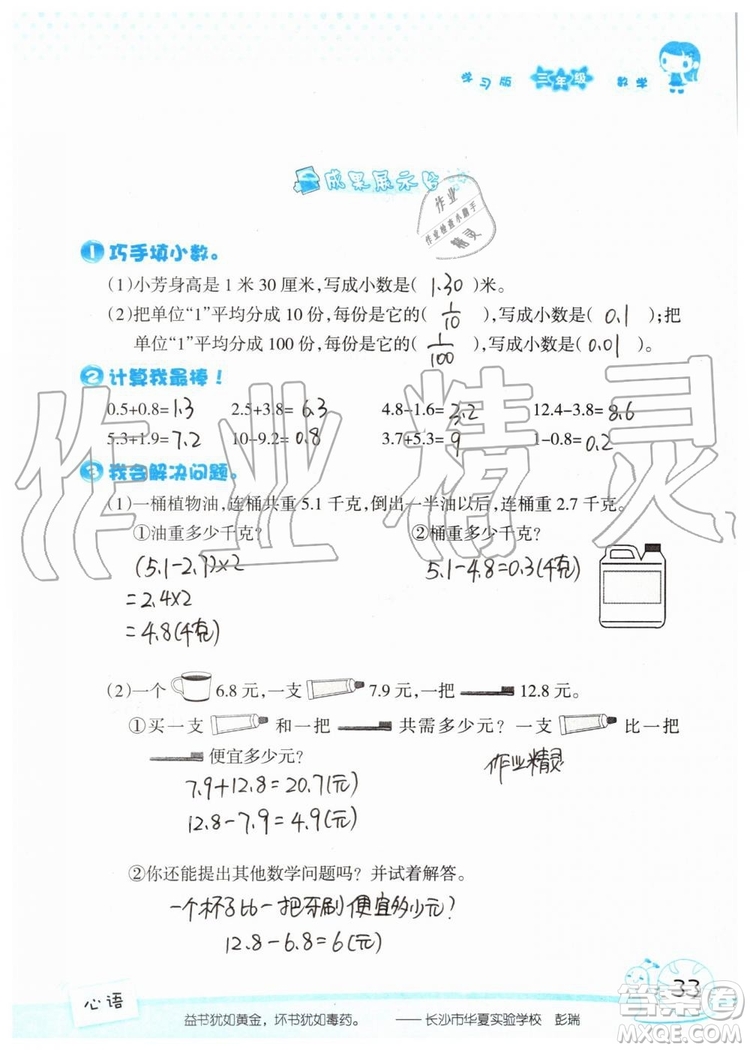 学习版 三年级 数学
成果展示台
作业
作业检查小助手
精灵
1 巧手填小数。
(1)小芳身高是1米30厘米,写成小数是( 1.30 )米。
(2)把单位“1”平均分成10份,每份是它的( 1/10 ),写成小数是( 0.1 );把
单位“1”平均分成100份,每份是它的( 1/100 ),写成小数是( 0.01 )。
2 计算我最棒!
0.5+0.8=1.3 2.5+3.8=6.3 4.8-1.6=3.2 12.4-3.8=8.6
5.3+1.9=7.2 10-9.2=0.8 3.7+5.3=9 1-0.8=0.2
3 我会解决问题。
(1)一桶植物油,连桶共重5.1千克,倒出一半油以后,连桶重2.7千克。
①油重多少千克? ②桶重多少千克?
(5.1-2.7)×2 5.1-4.8=0.3(千克)
=2.4×2
=4.8(千克)
(2)一个 6.8元,一支 7.9元,一把 12.8元。
①买一支 和一把 共需多少元?一支 比一把
便宜多少元?
作业精灵
7.9+12.8=20.7(元)
12.8-7.9=4.9(元)
②你还能提出其他数学问题吗?并试着解答。
一个杯子比一把牙刷便宜多少元?
12.8-6.8=6(元)
33
心语
益书犹如黄金,坏书犹如毒药。 ——长沙市华夏实验学校 彭瑞
作业精灵
答案圈
MXQE.COM